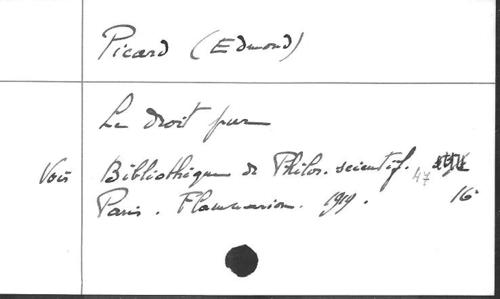 Picard (Edmond)
Le droit pur
Voir Bibliothèque de Philos. scientif. 47
Paris. Flammarion. 1919. 16º